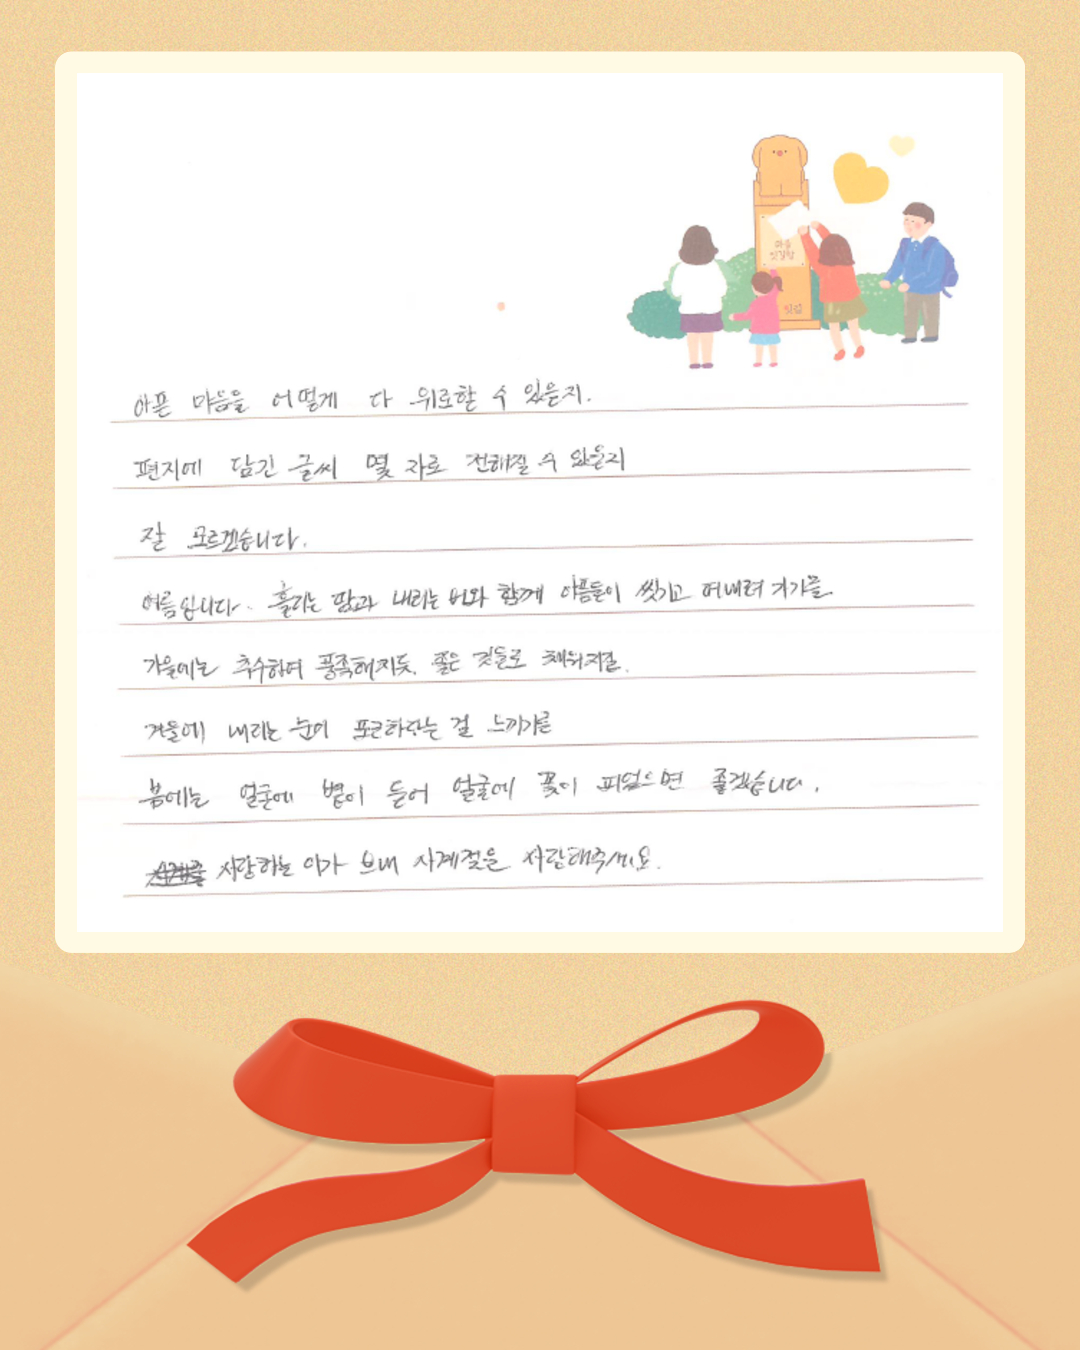 마음
아픈 마음을 어떻게 다 위로할 수 있을지.
편지에 담긴 글씨 몇 자로 전해질 수 있을지
잘 모르겠습니다.
여름입니다. 흘리는 땀과 내리는 비와 함께 아픔들이 씻기고 떠내려 가기를
가을에는 추수하여 풍족해지듯, 좋은 것들로 채워지길.
겨울에 내리는 눈이 포근하다는 걸 느끼기를
봄에는 얼굴에 볕이 들어 얼굴에 꽃이 피었으면 좋겠습니다.
사랑하는 이가 보내 사계절을 사랑해주세요.